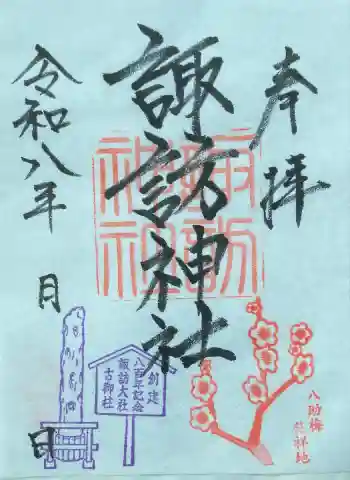 奉拝
諏訪神社
令和八年 月 日
諏訪神社
創建
八百年記念
諏訪大社
古御柱
八助梅
発祥地